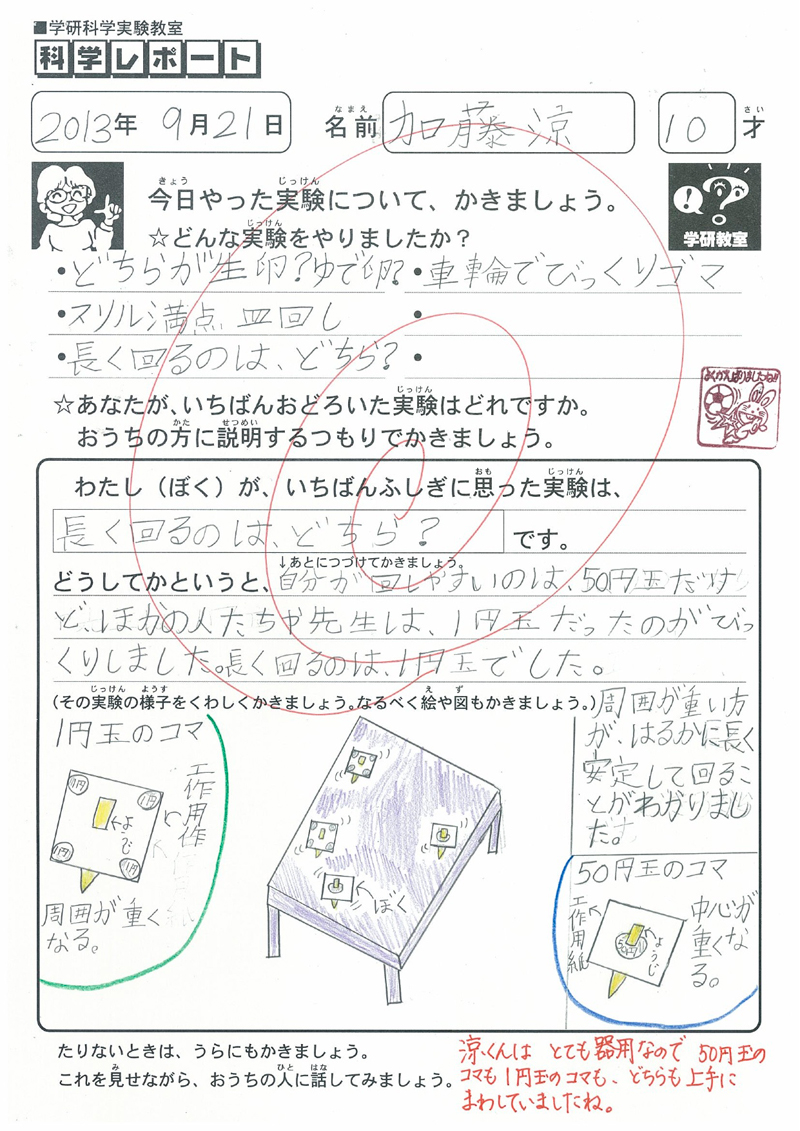 ■学研科学実験教室
科学レポート
2013年 9月21日 名前 なまえ 加藤涼 10才 さい
今日やった実験について、かきましょう。
きょう じっけん
☆どんな実験をやりましたか?
じっけん
学研教室
・どちらが生卵?ゆで卵? ・車輪でびっくりゴマ
・スリル満点 皿回し ・
・長く回るのは、どちら? ・
よくがんばりましたね!!
☆あなたが、いちばんおどろいた実験はどれですか。
じっけん
おうちの方に説明するつもりでかきましょう。
かた せつめい
わたし(ぼく)が、いちばんふしぎに思った実験は、
おも じっけん
長く回るのは、どちら? です。
↓あとにつづけてかきましょう。
どうしてかというと、自分が回しやすいのは、50円玉だけ
ど、ほかの人たちや先生は、1円玉だったのがびっ
くりしました。長く回るのは、1円玉でした。
(その実験の様子をくわしくかきましょう。なるべく絵や図もかきましょう。)
じっけん ようす え ず
1円玉のコマ
1円
1円
1円
1円
ようじ
工作用
周囲が重く
なる。
ぼく
周囲が重い方
が、はるかに長く
安定して回るこ
とがわかりまし
た。
50円玉のコマ
工作用紙
ようじ
中心が
重くな
る。
たりないときは、うらにもかきましょう。
これを見せながら、おうちの人に話してみましょう。
み ひと はな
涼くんは とても器用なので 50円玉の
コマも1円玉のコマも、どちらも上手に
まわしていましたね。